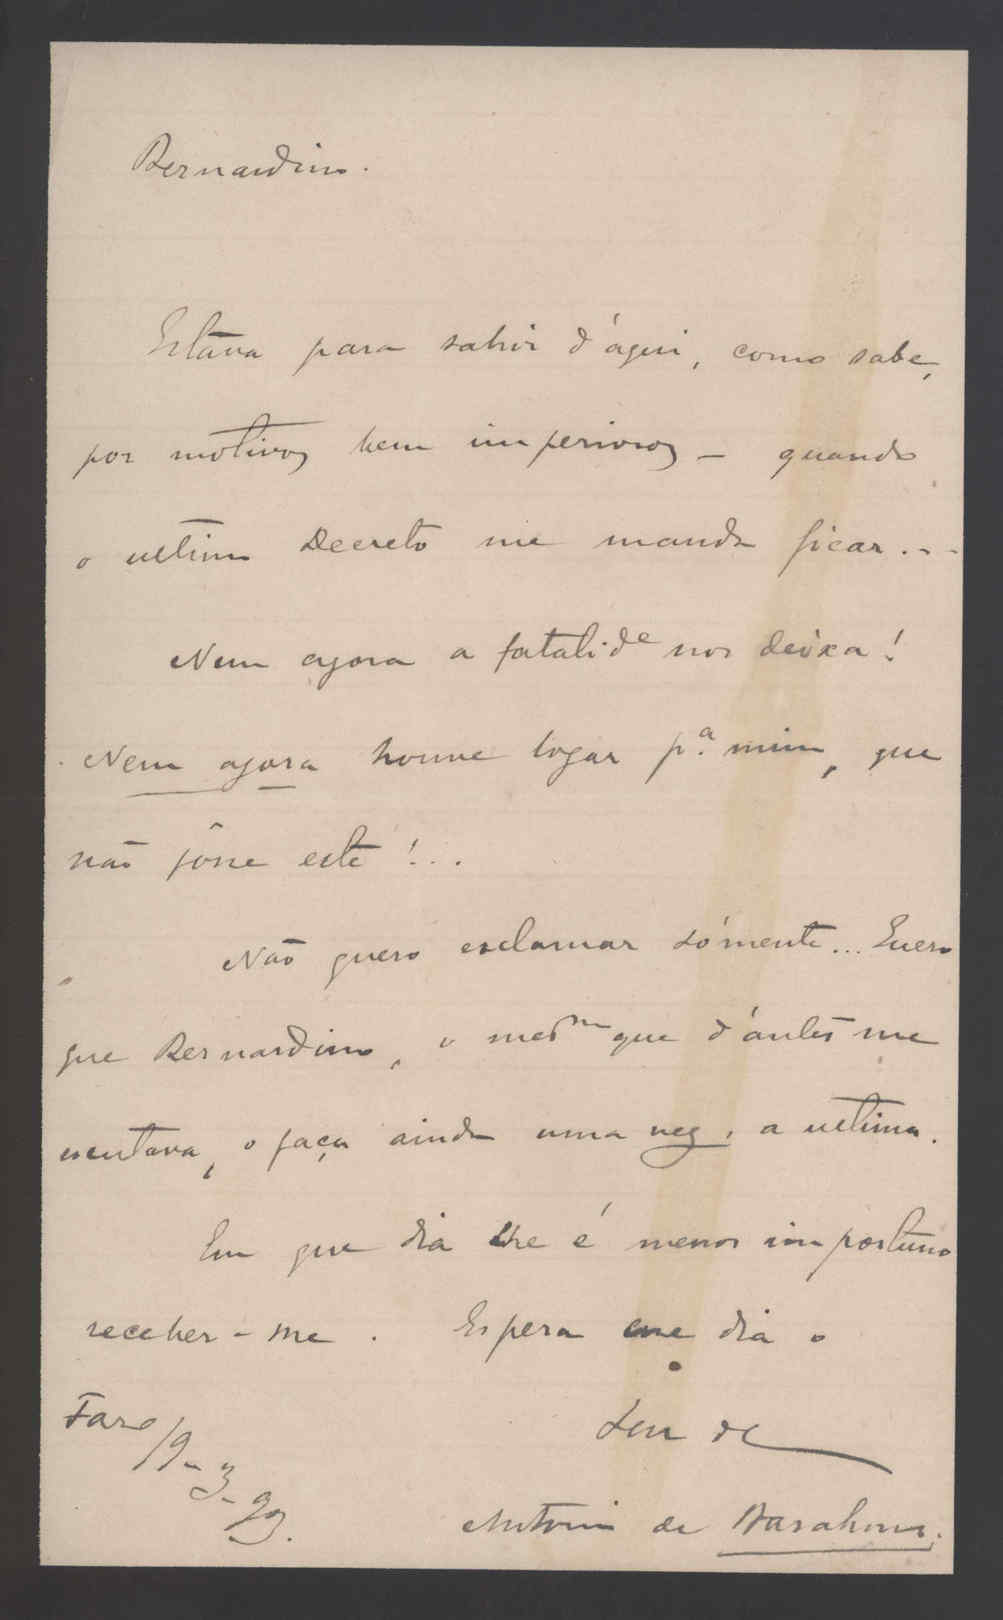 Bernardino.
Estava para sahir d'áqui, como sabe,
por motivos bem imperiosos — quando
o ultimo Decreto me manda ficar...
Nem agora a fatalid.e nos deixa!
Nem agora houve logar p.a mim, que
não fôsse este!...
Não quero exclamar sómente... Quero
que Bernardino, o mesm que d'ántes me
escutava, o faça ainda uma vez, a ultima.
Em que dia lhe é menos importuno
receber-me. Espera esse dia o
Seu de
Faro
19-3-93.
Antonio de Barahona.